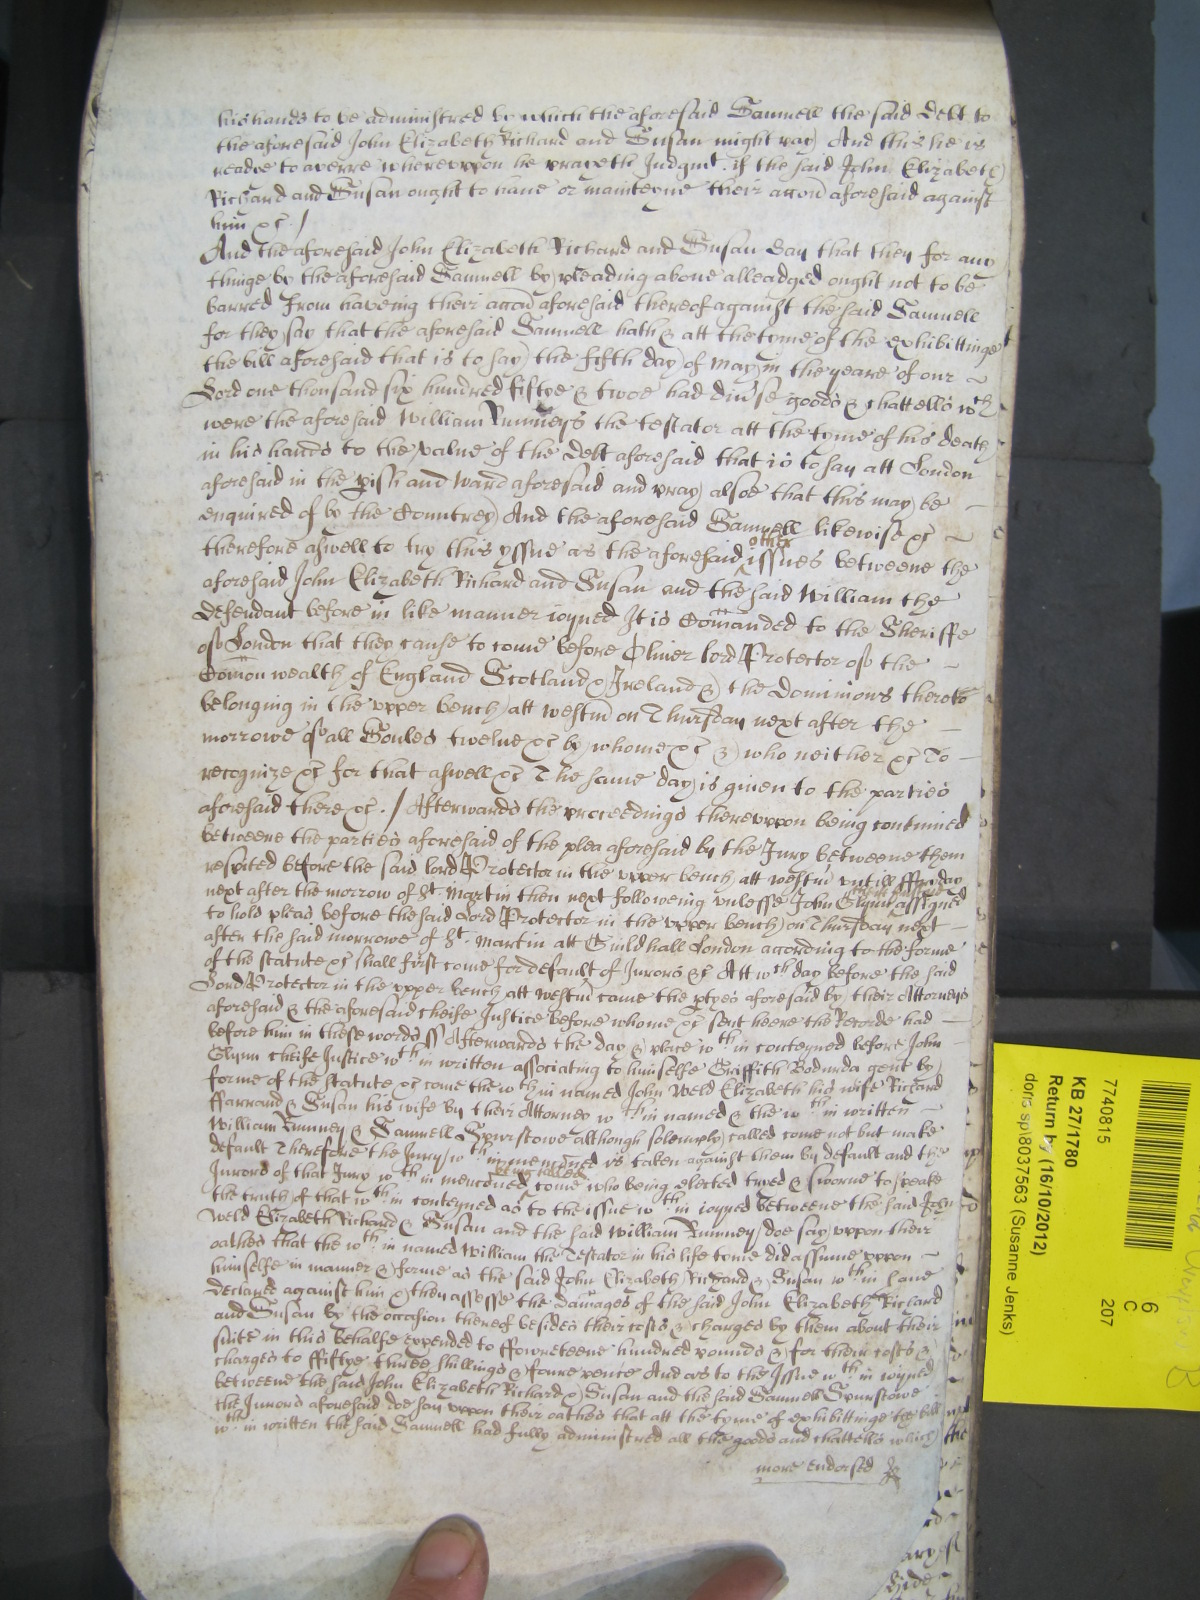 his hands to be administred by which the aforesaid Samuell the said debt to
the aforesaid John Elizabeth Richard and Susan might pay And this he is
readye to averre whereuppon he prayeth Judgmt. if the said John Elizabeth
Richard and Susan ought to haue or mainteyne their accon aforesaid against
him &c /
And the aforesaid John Elizabeth Richard and Susan Say that they for any
thinge by the aforesaid Samuell by pleading aboue alleadged ought not to be
barred From haveing their accon aforesaid thereof against the said Samuell
for they say that the aforesaid Samuell hath & att the tyme of the exhibittinge
the bill aforesaid that is to say the fifth day of May in the yeare of our
Lord one thousand six hundred fiftye & twoe had diuse goods & chattells wch
were the aforesaid William Rumneys the testator att the tyme of his death
in his hands to the value of the debt aforesaid that is to say att London
aforesaid in the pish and Ward aforesaid and pray alsoe that this may be
enquired of by the Countrey And the aforesaid Samuell likewise &c
therefore aswell to try this yssue as the aforesaid other issues betweene the
aforesaid John Elizabeth Richard and Susan and the said William the
defendant before in like manner ioyned It is Comanded to the Sheriffe
of London that they cause to come before Oliuer lord Protector of the
Comon wealth of England Scotland & Ireland & the dominions thereto
belonging in the upper bench att westm on Thursday next after the
morrowe of all Soules twelue &c by whome &c & who neither &c To
recognize &c for that aswell &c The same day is giuen to the parties
aforesaid there &c. / Afterwards the proceedings thereuppon being continued
betweene the parties aforesaid of the plea aforesaid by the Jury betweene them
respited before the said lord Protector in the upper bench att westm untill ffryday
next after the morrow of St Martin then next followeing unlesse John Glynn assigned
to hold pleas before the said Lord Protector in the upper bench on Thursday next
after the said morrowe of St. Martin att Guildhall London according to the forme
of the statute &c shall first come for default of Jurors &c Att wch day before the said
Lord Protector in the upper bench att westm came the ptyes aforesaid by their Attorneys
aforesaid & the aforesaid cheife Justice before whome &c sent heere the Recorde had
before him in these words ss Afterwards the day & place wth in conteyned before John
Glynn cheife Justice wth in written associating to himselfe Griffith Bodurda gent by
forme of the statute &c come the wth in named John Weld Elizabeth his wife Richard
ffarrand & Susan his wife By their Attorney wth in named & the wth in written
William Rumney & Samuell Spurstowe although solemply called come not but make
default Therefore the Jury wth in menconed is taken against them by default and the
Jurors of that Jury wth in menconed being called come who being elected tryed & sworne to speake
the truth of that wth in conteyned as to the issue wth in ioyned betweene the said John
Weld Elizabeth Richard & Susan and the said William Rumney doe say uppon their
oathes that the wth in named William the Testator in his life tyme did assume uppon
himselfe in manner & forme as the said John Elizabeth Richard & Susan wth in haue
declared against him & then assesse the damages of the said John Elizabeth Richard
and Susan by the occasion thereof besides their costs & charges by them about their
suite in this behalfe expended to ffowreteene hundred pounds & for their costs &
charges to ffiftye three shillings & foure pence And as to the Issue wth in ioyned
betweene the said John Elizabeth Richard & Susan and the said Samuell Spurstowe
the Jurors aforesaid doe say uppon their oathes that att the tyme of exhibittinge the bill
wth in written the said Samuell had fully administred all the goods and chattells which
more endorsed
7740815
KB 27/1780
Return by (16/10/2012)
doris sp\8037563 (Susanne Jenks)
6
C
207